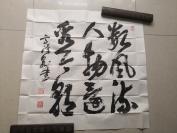 數風流
人物還
看今朝